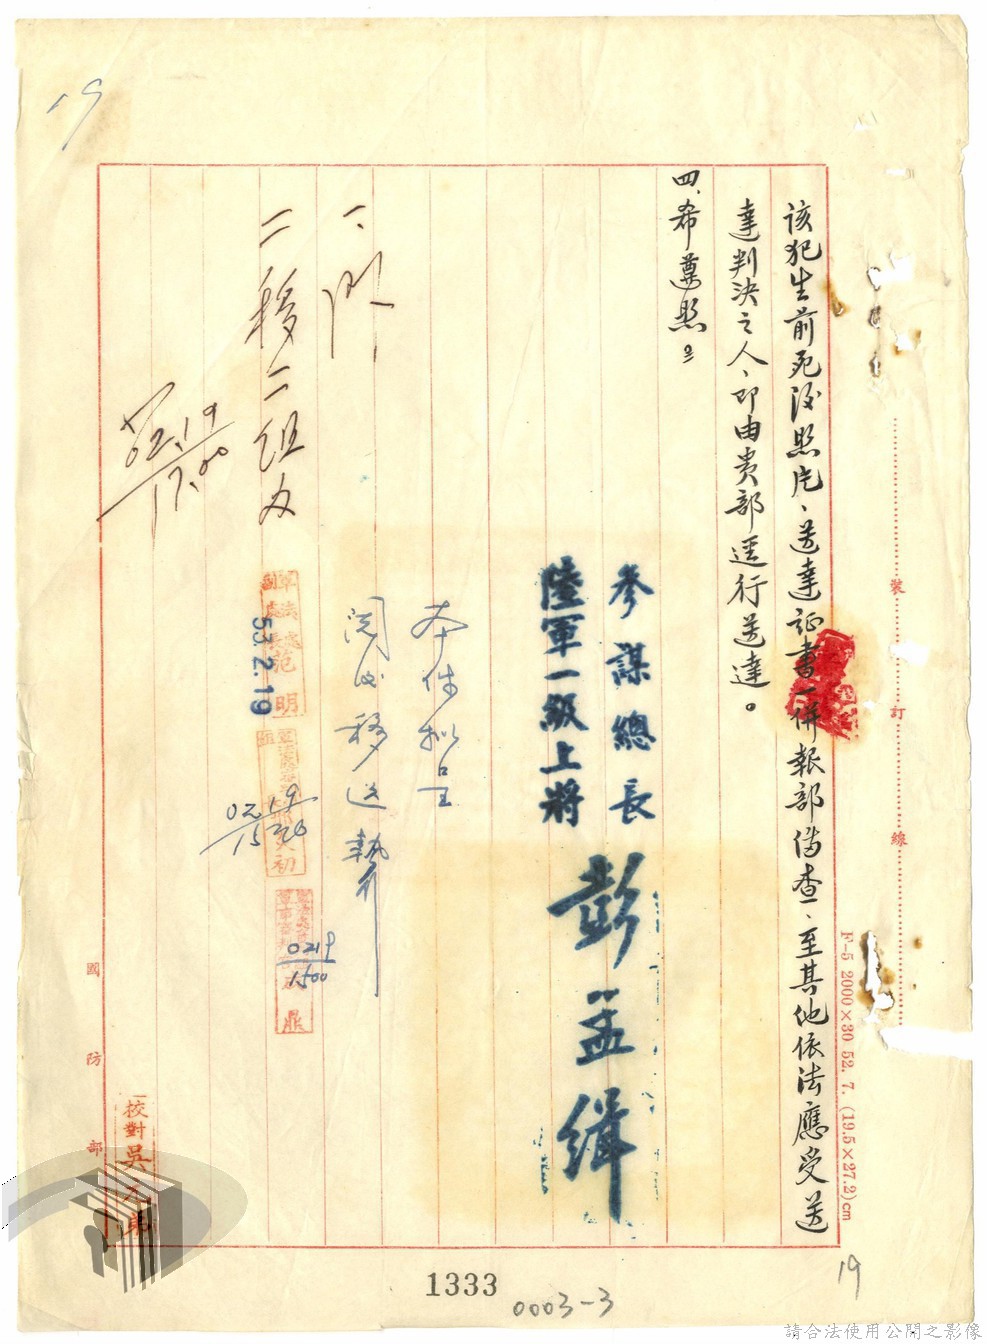 該犯生前死後照片、送達証書一併報部備查、至其他依法應受送
達判決之人、即由貴部逕行送達。
四、希遵照。
參謀總長
陸軍一級上將
彭孟緝
本件擬呈
閱後移送執行
一、閱
二移二組办
02.19
17.00
53.2.19
0219
1520
0219
1500
國防部
校對吳
裝
訂
線
F-5 2000×30 52. 7. (19.5×27.2)cm
19
19
1333
0003-3
請合法使用公開之影像